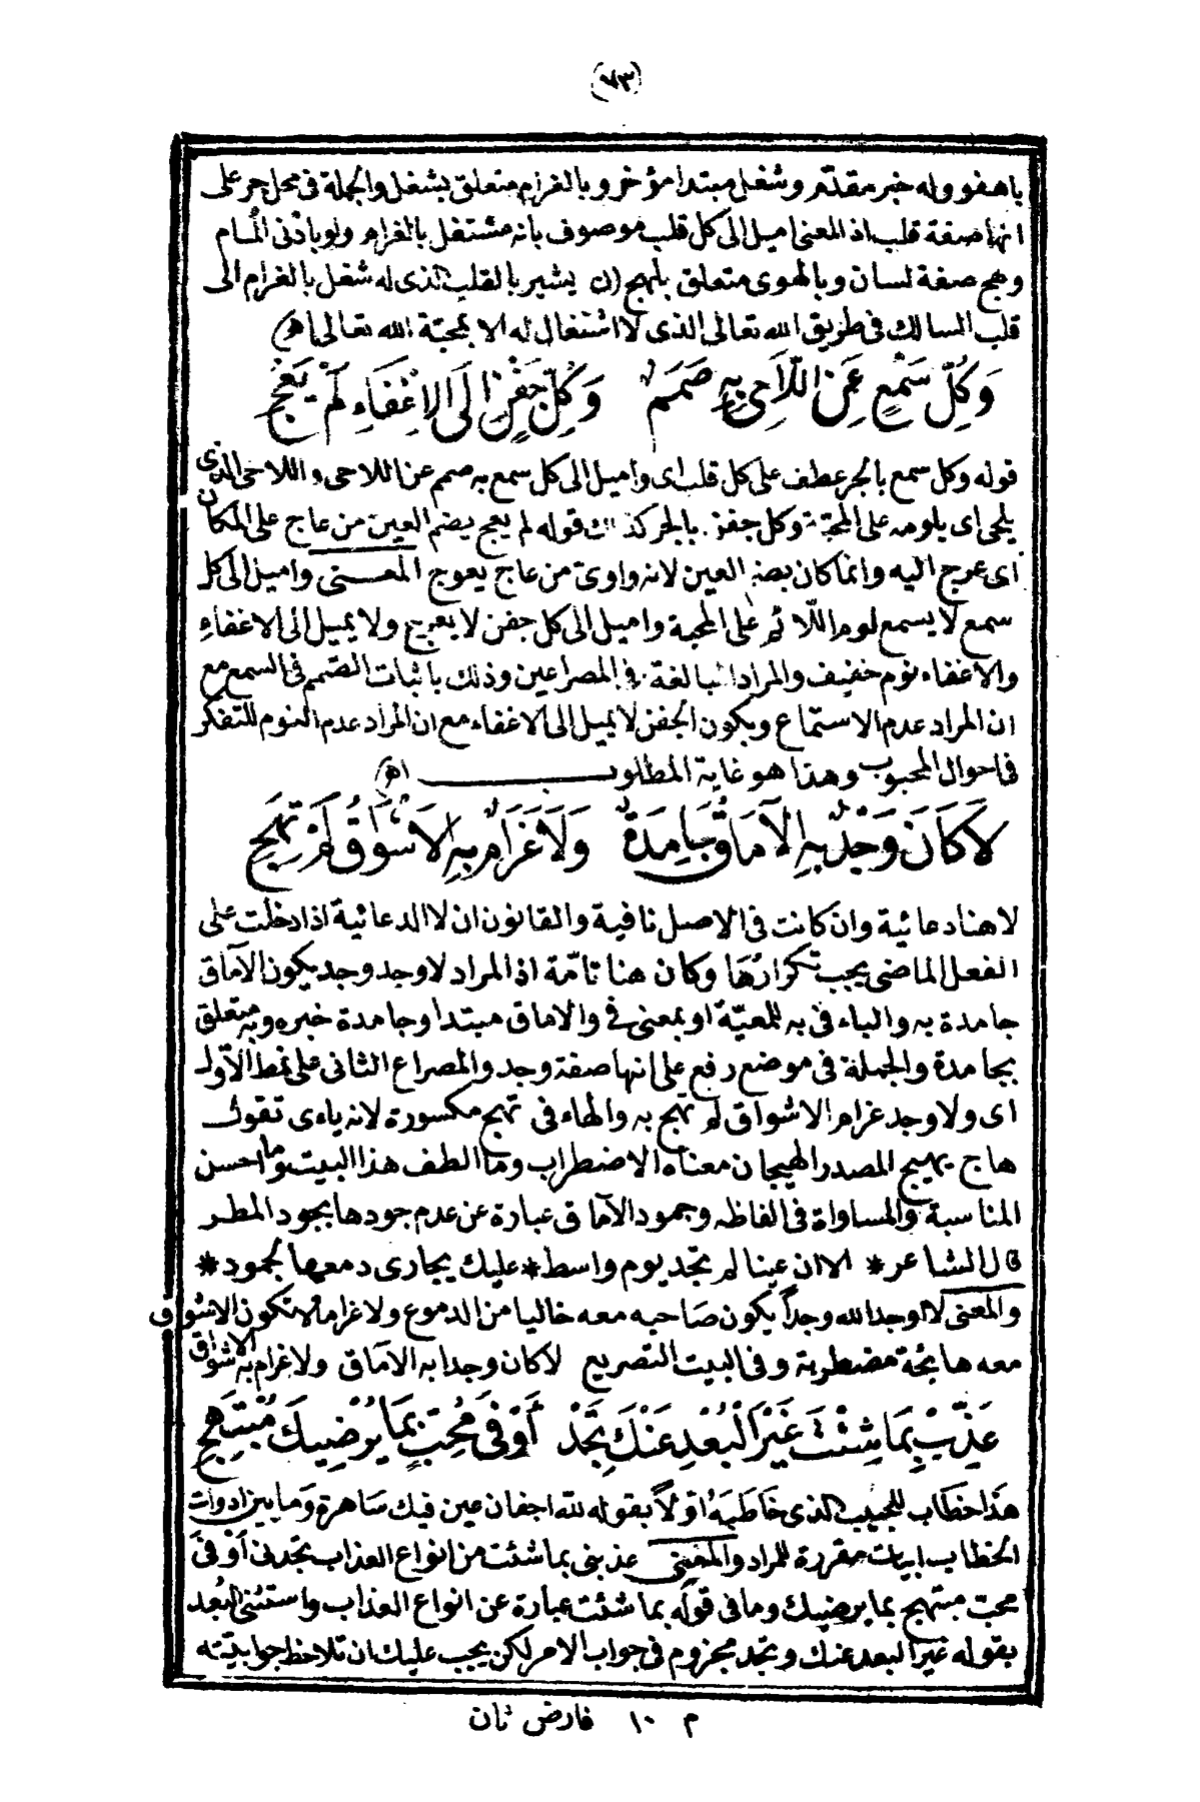 (٧٣)
باهفو وله خبر مقدّم وشغل مبتدا مؤخر وبالغرام متعلق بشغل والجملة فى محل جر على
انها صفة قلب اذ المعنى اميل الى كل قلب موصوف بانه مشتغل بالغرام ولو باذنى المام
ولهج صفة لسان وبالهوى متعلق بلهج (ن) يشير بالقلب الذى له شغل بالغرام الى
قلب السالك فى طريق الله تعالى الذى لا اشتغال له الا بمحبّة الله تعالى (اهـ)
وَكُلِّ سَمْعٍ عَنِ اللَّاحِى بِهِ صَمَمٌ وَكُلِّ جَفْنٍ إِلَى الاِغْفَاءِ لَمْ يَعُجِ
قوله وكل سمع بالجر عطف على كل قلب اى واميل الى كل سمع به صمم عن اللاحى واللاحى الذى
يلحى اى يلومه على المحبّة وكل جفن بالجر كذلك قوله لم يعج بضم العين من عاج على المكان
اى عرج اليه وانما كان بضم العين لانه واوى من عاج يعوج المعنى واميل الى كل
سمع لا يسمع لوم اللّائم على المحبة واميل الى كل جفن لا يعرج ولا يميل الى الاغفاءِ
والاغفاء نوم خفيف والمراد المبالغة فى المصراعين وذلك باثبات الصّمم فى السمع مع
ان المراد عدم الاستماع وبكون الجفن لا يميل الى الاغفاء مع ان المراد عدم النوم للتفكر
فى احوال المحبوب وهذا هو غاية المطلوب (اهـ)
لَا كَانَ وَجْدٌ بِهِ الآمَاقُ جَامِدَةٌ وَلَا غَرَامٌ بِهِ الاَشْوَاقُ لَمْ تَهِجِ
لا هنا دعائية وان كانت فى الاصل نافية والقانون ان لا الدعائية اذا دخلت على
الفعل الماضى يجب تكرارُهَا وكان هنا تامّة اذ المراد لا وجد وجد يكون الآماق
جامدة به والباء فى به للمعيّة او بمعنى فى والاماق مبتدا وجامدة خبره وبه متعلق
بجامدة والجملة فى موضع رفع على انها صفة وجد والمصراع الثانى على نمط الأوّل
اى ولا وجد غرام الاشواق لم تهج به والهاء فى تهج مكسورة لانه ياءى تقول
هاج يهيج المصدر الهيجان معناه الاضطراب وما الطف هذا البيت وما احسن
المناسبة والمساواة فى الفاظه وجمود الآماق عبارة عن عدم جودها بجود المطر
قال الشاعر * الا ان عينا لم تجد يوم واسط * عليك بجارى دمعها لجمود *
والمعنى لا اوجد الله وجداً يكون صَاحبه معه خاليا من الدموع ولا غراما لا تكون الاشواق
معه هائجة مضطربة وفى البيت التصريع لا كان وجدا به الآماق ولا غرام به الاشواق
عَذِّبْ بِمَا شِئْتَ غَيْرَ الْبُعْدِ عَنْكَ تَجِدْ أَوْفَى مُحِبٍّ بِمَا يُرْضِيكَ مُبْتَهِجِ
هَذا خطَاب للحبيب الذى خَاطَبَهُ اوّلاً بقوله لله اجفان عين فيك سَاهرة وَما بين ادوات
الخطاب ابيات مقررة للمراد والمعنى عذبنى بما شئت من انواع العذاب تجدنى أَوْفَى
محب مبتهج بما يرضيك وما فى قوله بما شئت عبارة عن انواع العذاب واستثنى البُعد
بقوله غير البعد عنك وتجد مجزوم فى جواب الامر لكن يجب عليك ان تلاحظ جوابيّته
م ١٠ فارض ثان